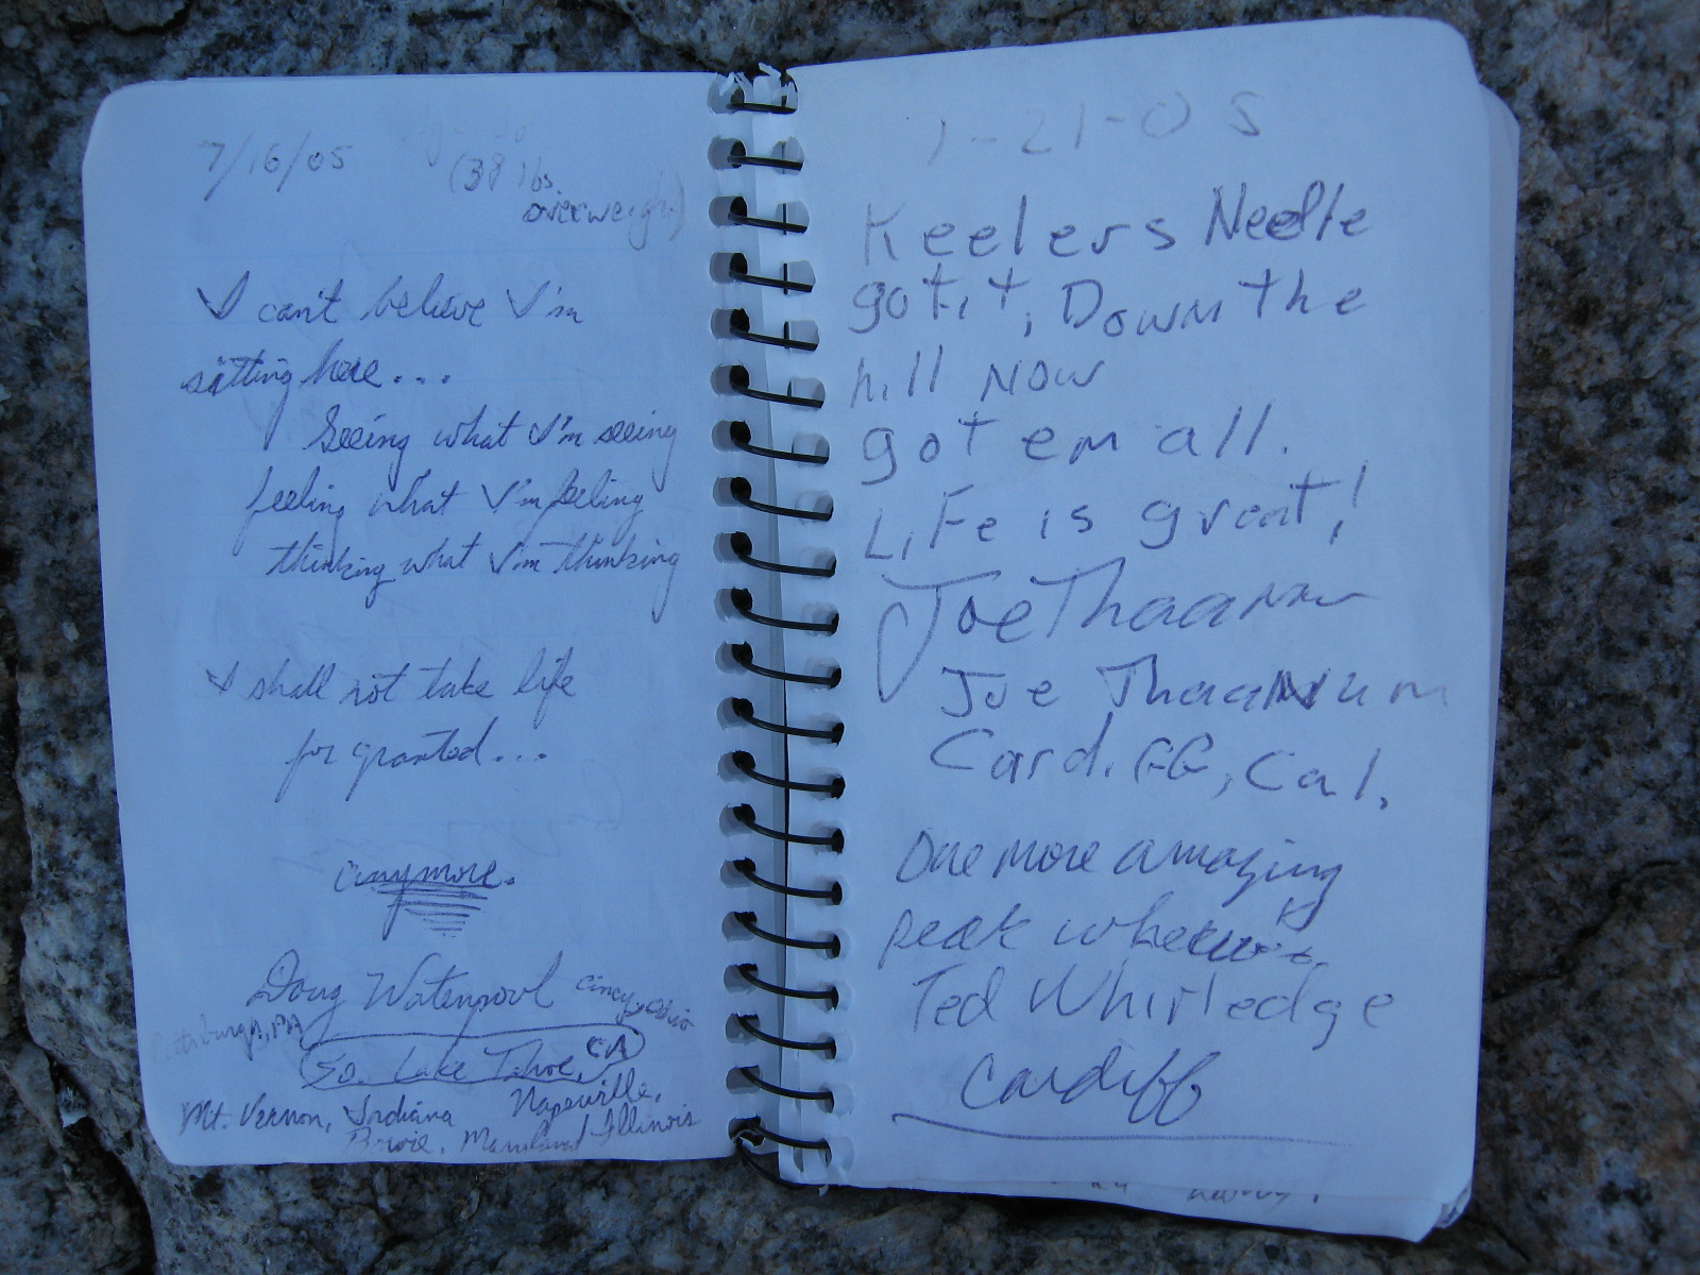 7/16/05
(38 lbs.
overweight)
I can't believe I'm
sitting here...
Seeing what I'm seeing
feeling what I'm feeling
thinking what I'm thinking
I shall not take life
for granted...
anymore.
Doug Waterpool Cincy, Ohio
Pittsburgh, PA
So. Lake Tahoe, CA
Mt. Vernon, Indiana Naperville,
Bowie, Maryland Illinois
7-21-05
Keelers Needle
got it, Down the
hill now
got em all.
Life is great!
Joe Thaanum
Joe Thaanum
Cardiff, Cal.
One more amazing
peak
Ted Whirledge
Cardiff